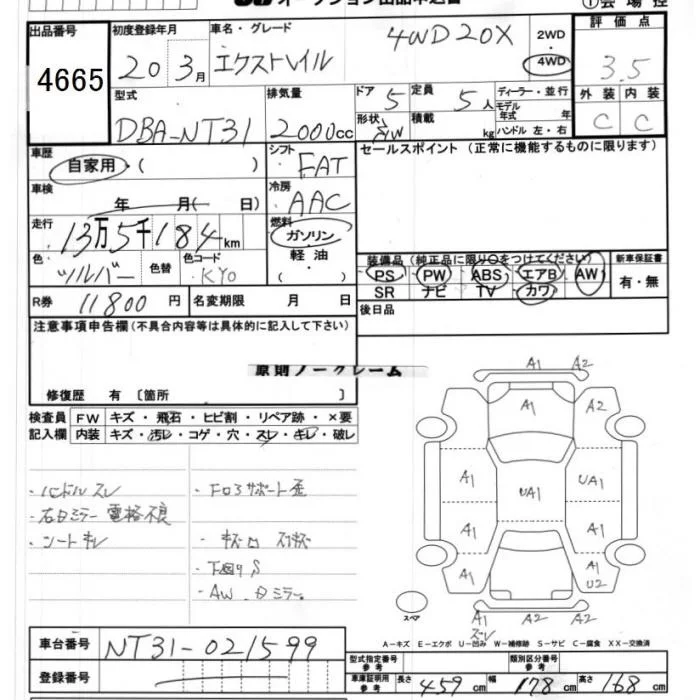 オークション出品申込書
①会場控
出品番号
4665
初度登録年月
20 3月
車名・グレード
エクストレイル 4WD 20X
2WD
・
4WD
評価点
3.5
外装 内装
C C
型式
DBA-NT31
排気量
2000cc
ドア 5
形状 S/W
定員 5人
積載 kg
ディーラー・並行
モデル年式 年
ハンドル 左・右
車歴
自家用・( )
車検
年 月( 日)
走行
13万5千184km
色・
シルバー
色替
色コード
KY0
シフト
FAT
冷房
AAC
燃料
ガソリン
軽油
・( )
セールスポイント(正常に機能するものに限ります)
装備品(純正品に限り○をつけてください)
PS PW ABS エアB AW
SR ナビ TV カワ
新車保証書
有・無
後日品
R券 11800円
名変期限 月 日
注意事項申告欄(不具合内容等は具体的に記入して下さい)
原則ノークレーム
修復歴 有〔箇所 〕
検査員記入欄
FW キズ・飛石・ヒビ割・リペア跡・×要
内装 キズ・汚レ・コゲ・穴・スレ・キレ・破レ
・ハンドルスレ
・右ドミラー電格不良
・シートキレ
・下回りS
・AW、ドミラー
A1 A2
A1 A2
A1 UA1 UA1
A1 A1
A1 A1
U2
A2 A2 A2
スレ
スペア
A-キズ E-エクボ U-凹み W-補修跡 S-サビ C-腐食 XX-交換済
車台番号 NT31-021599
登録番号
型式指定番号
参考
類別区分番号
参考
車庫証明用
参考
長さ 459cm 幅 178cm 高さ 168cm